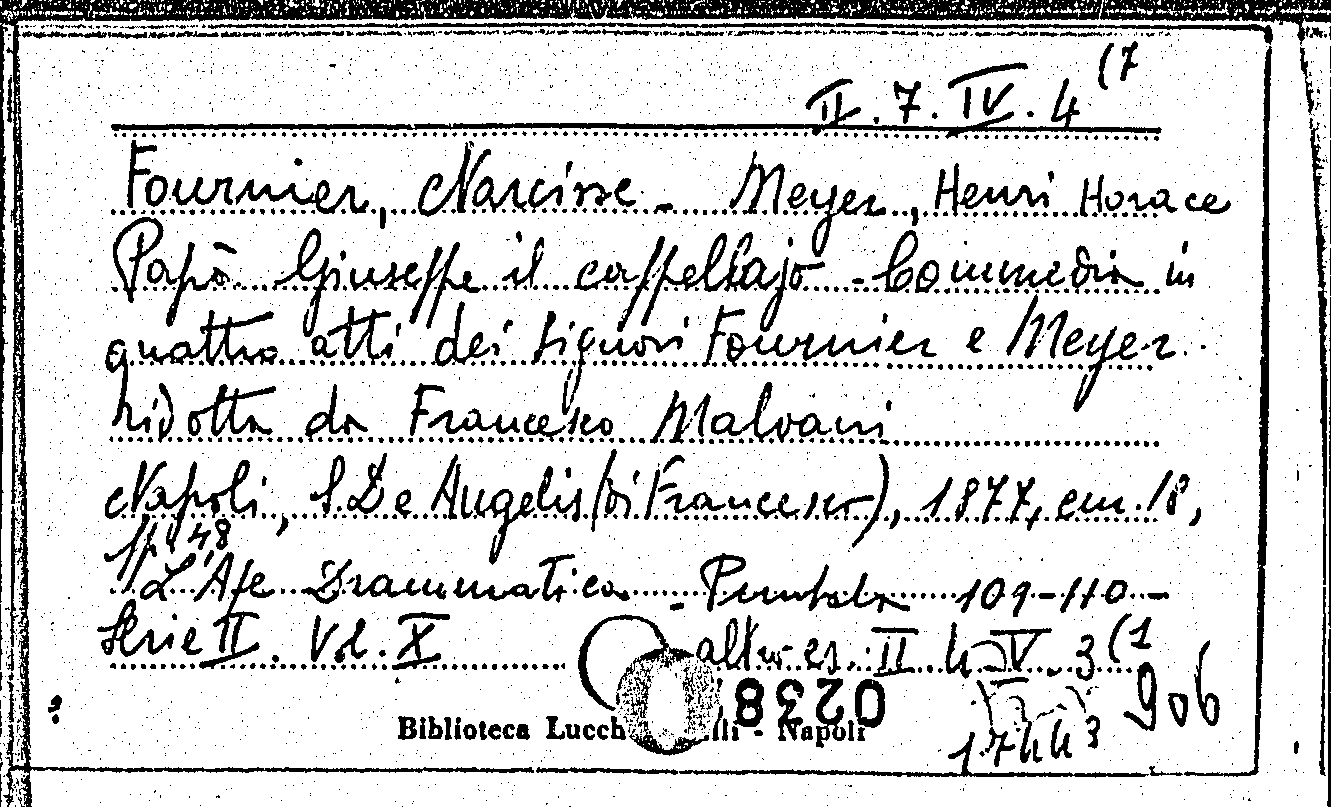 II. 7. IV. 4 (7
Fournier, Narcisse - Meyer, Henri Horace
Papà Giuseppe il cappellajo - Commedia in
quattro atti dei Signori Fournier e Meyer
ridotta da Francesco Malvani
Napoli, S. De Angelis (di Francesco), 1877, cm. 18,
pp. 48
L'Ape Drammatica - Puntata 109-110 -
Serie II. Vol. X altro es. II 4 V. 3 (1
0238
906
Biblioteca Lucch lli - Napoli